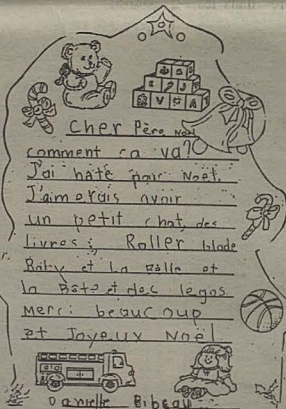 Cher Père Noel
comment ça va?
J'ai hâte pour Noël.
J'aimerais avoir
un petit chat, des
livres: Roller blade
Baby et La Bèlle et
la Bête et des legos
Merci beaucoup
et Joyeux Noël
Danielle Bibeau